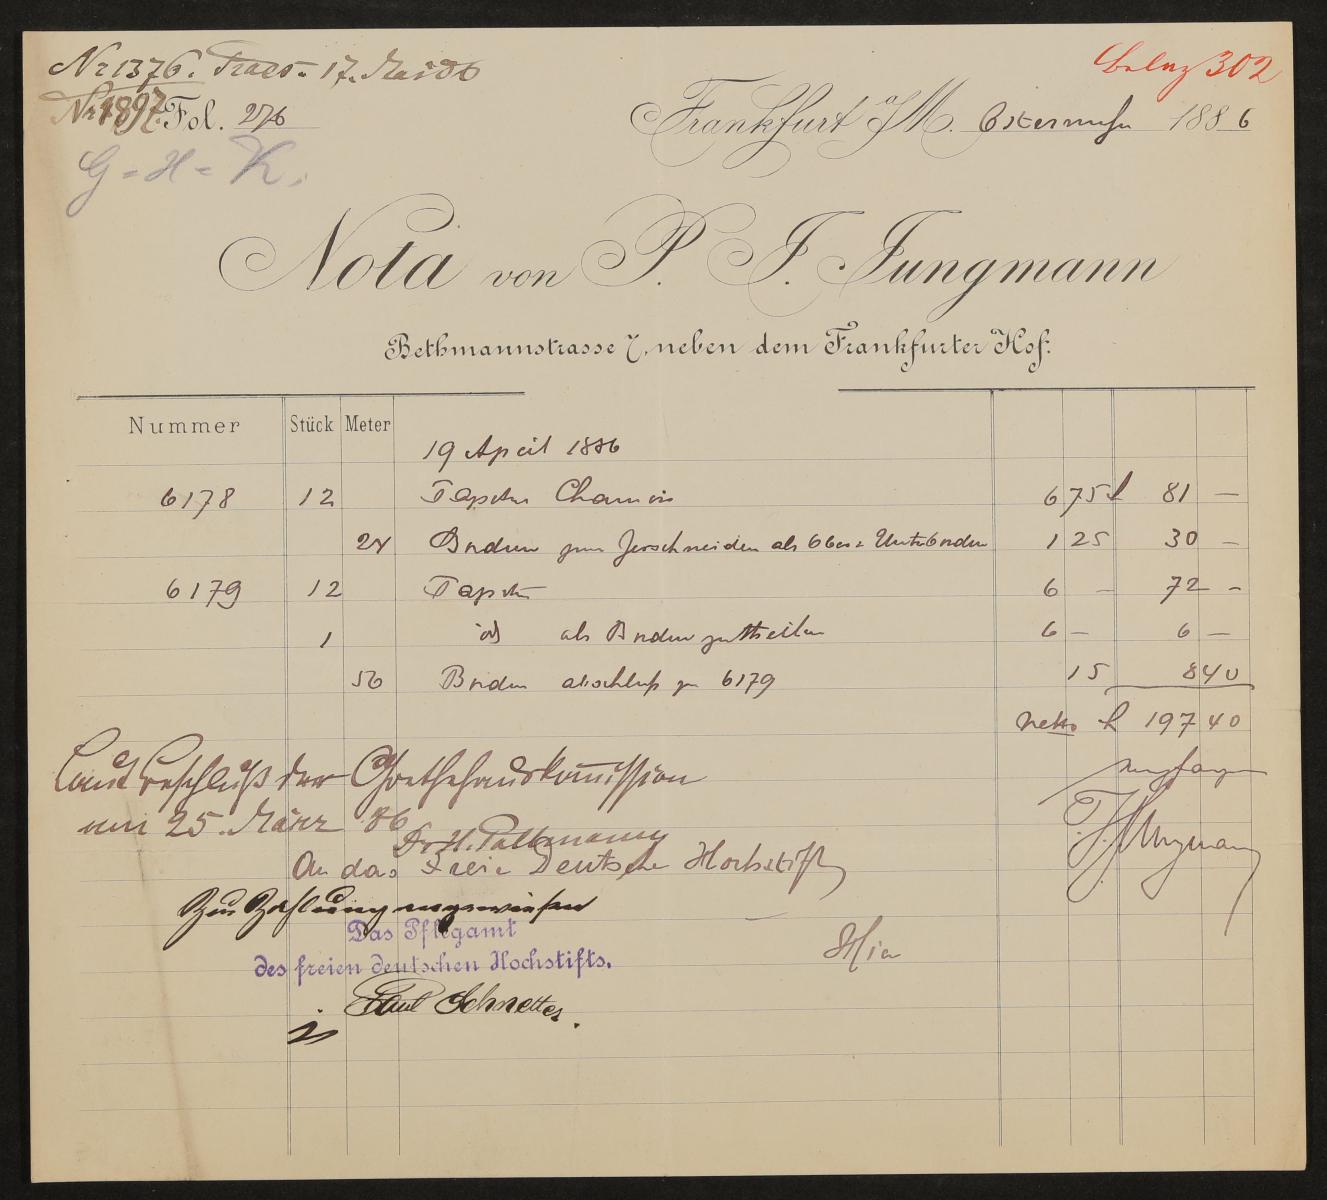 Nr 1376. Praes. 17. Mai 86
Beleg 302
Nr 1897. Fol. 276
Frankfurt a/M. Ostermesse 1886
G = H = K.
Nota von P. J. Jungmann
Bethmannstrasse 7, neben dem Frankfurter Hof.
Nummer Stück Meter
19 April 1886
6178 12 Tapeten Chamois 6 75 81 —
24 Borden zum Zerschneiden als Ober= Unterborden 1 25 30 —
6179 12 Tapeten 6 — 72 —
1 id als Borden zu theilen 6 — 6 —
56 Borden abschluß zu 6179 15 8 40
netto 197 40
Laut Beschluß der Goethehauskommission
vom 25. März 86
empfangen
Dr. H. Pallmann
P. J. Jungmann
An das Freie Deutsche Hochstift
Zur Zahlung angewiesen
Das Pflegamt
Hier
des freien deutschen Hochstifts.
Paul Schnetter.